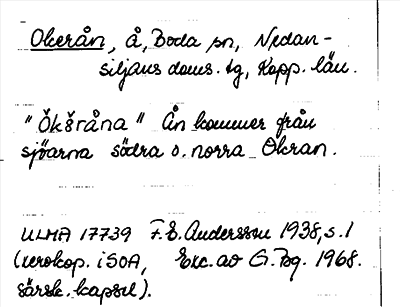 Okerån, å, Boda sn, Nedan-
siljans doms. tg, Kopp. län.
"Ökšråna" Ån kommer från
sjöarna södra o. norra Okran.
ULMA 17739 F.E. Andersson 1938, s. 1
(xerokop. i SOA, Exc. av G. Bg. 1968.
särsk. kapsel).